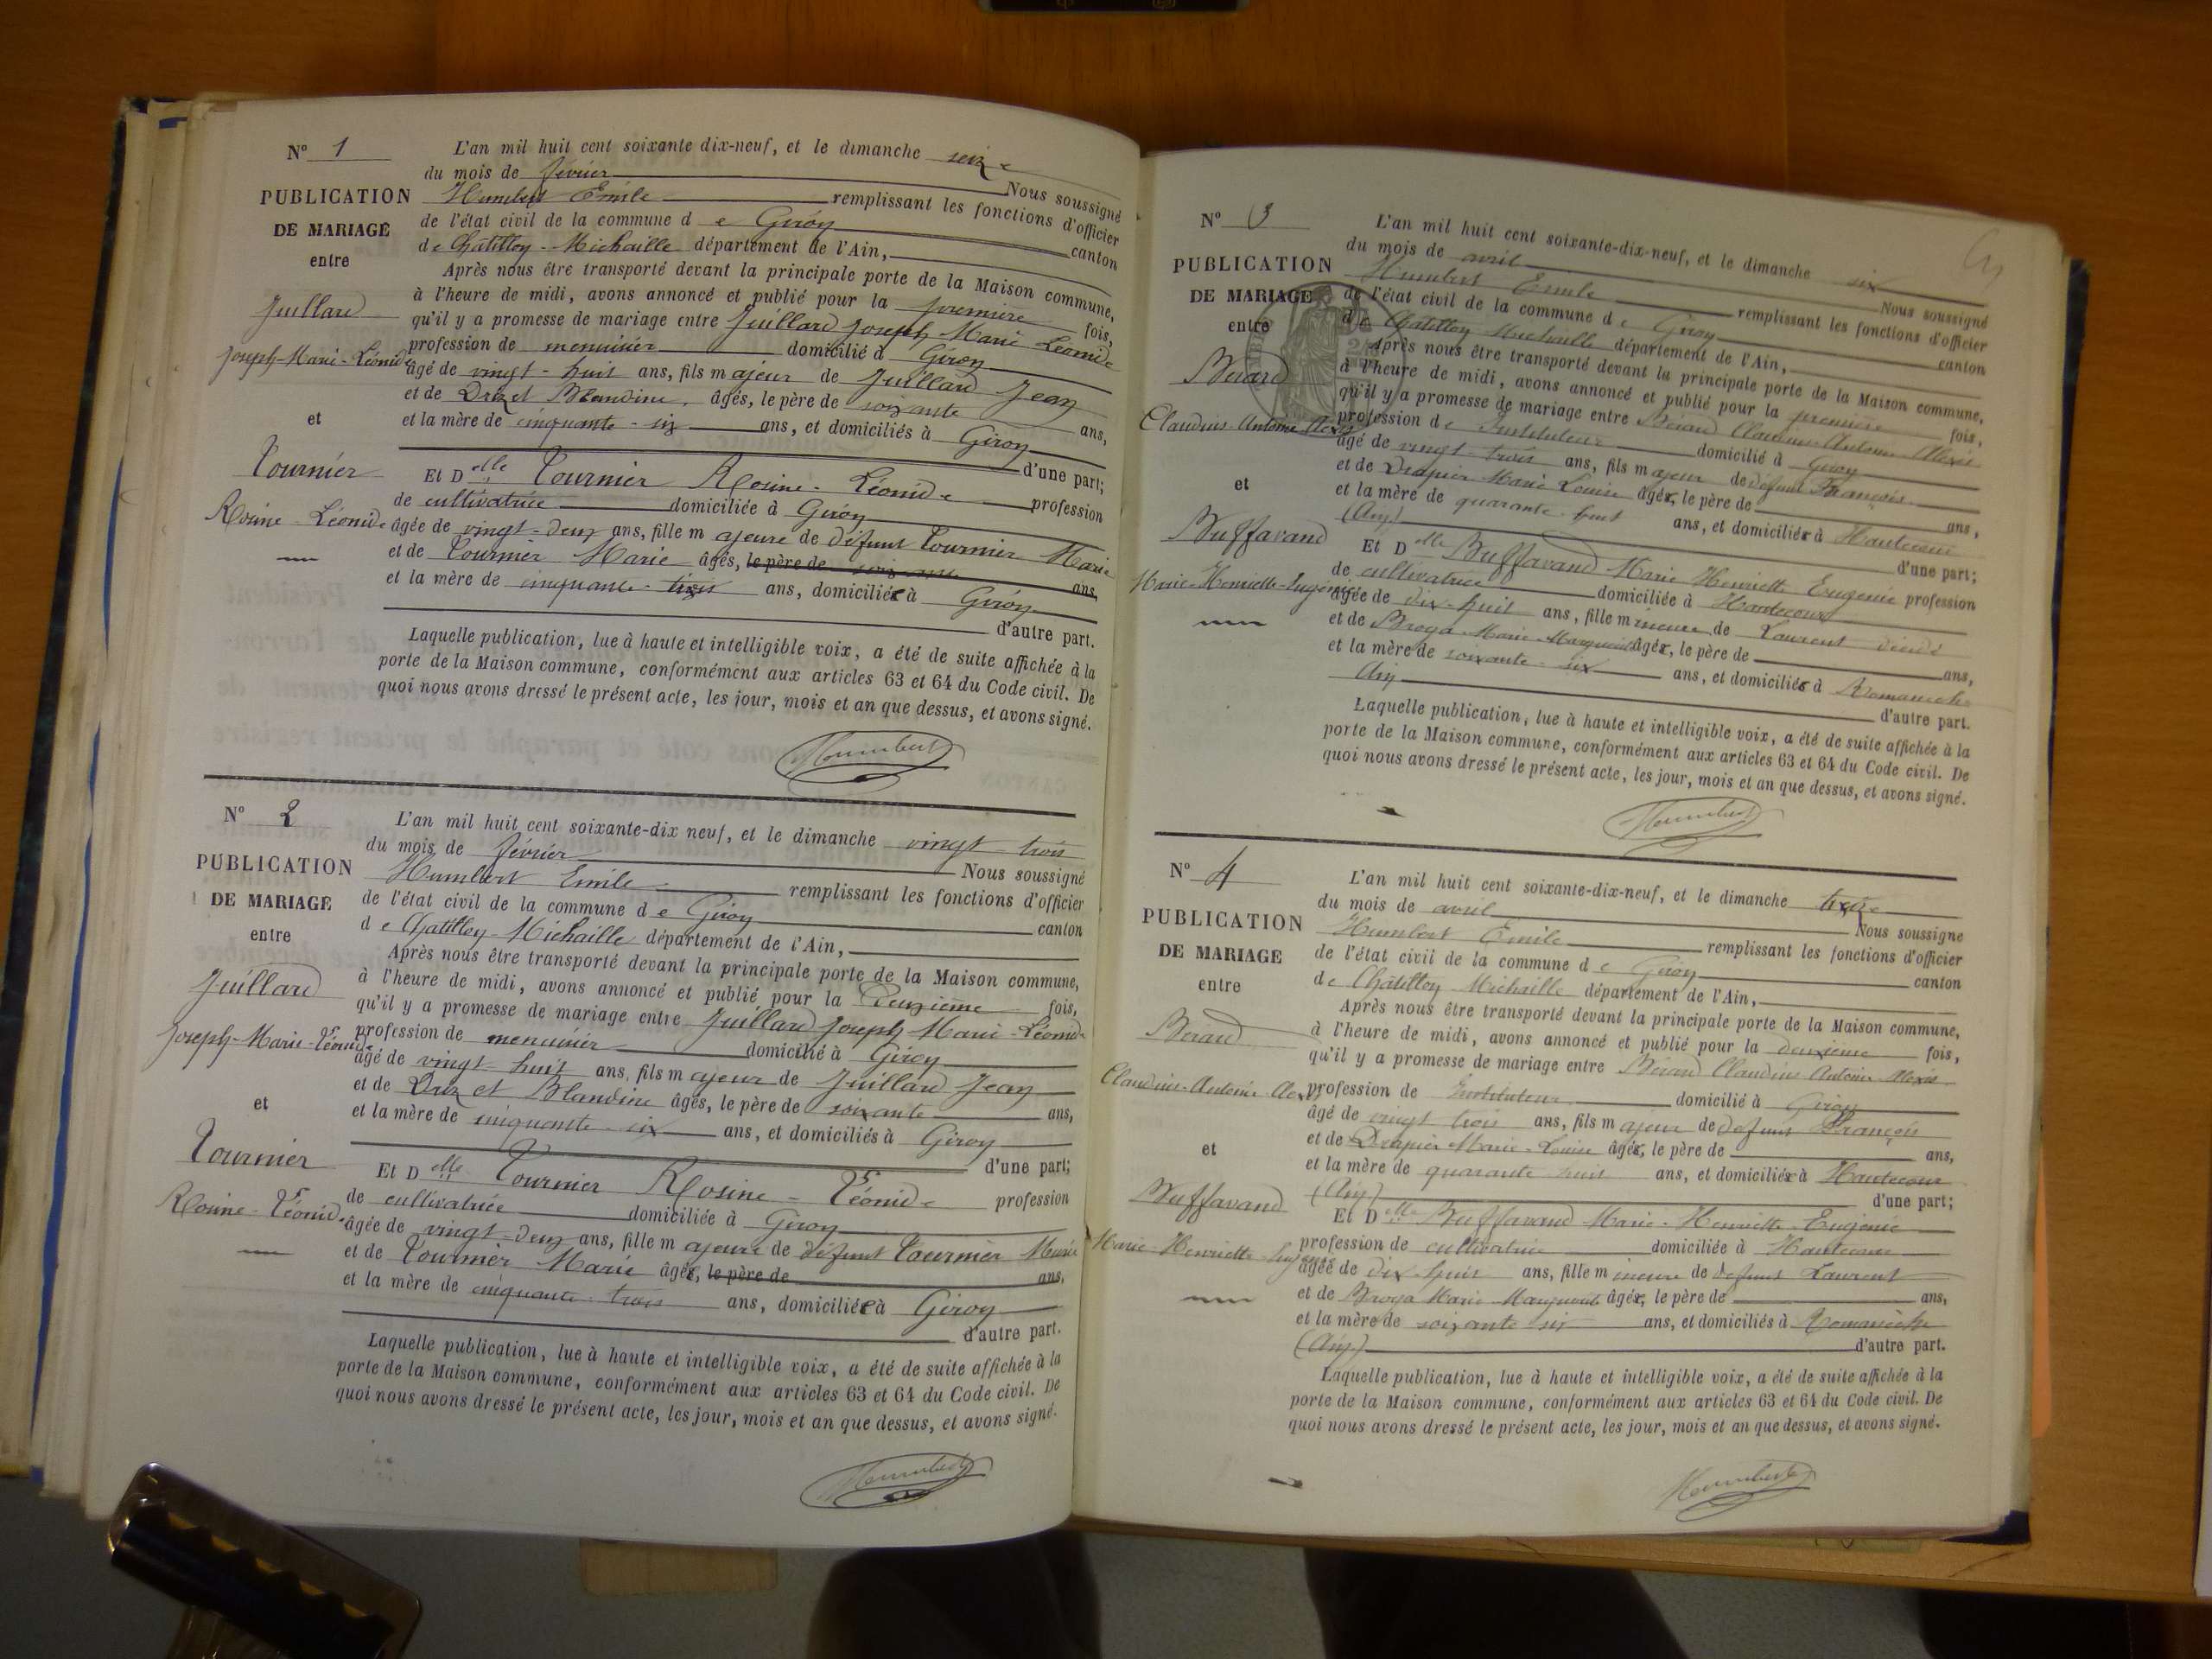 N° 1
PUBLICATION
DE MARIAGE
entre
Juillard
Joseph-Marie-Léonide
et
Tournier
Rosine-Léonide
L'an mil huit cent soixante dix-neuf, et le dimanche seize
du mois de février Nous soussigné
Humbert Emile remplissant les fonctions d'officier
de l'état civil de la commune de Giron canton
de Châtillon-Michaille département de l'Ain,
Après nous être transporté devant la principale porte de la Maison commune,
à l'heure de midi, avons annoncé et publié pour la première fois,
qu'il y a promesse de mariage entre Juillard Joseph Marie-Léonide
profession de menuisier domicilié d Giron
âgé de vingt-huit ans, fils majeur de Juillard Jean
et de Blandine, âgés, le père de soixante ans,
et la mère de cinquante-six ans, et domiciliés à Giron
d'une part;
Et Delle Tournier Rosine-Léonide profession
de cultivatrice domiciliée à Giron
âgée de vingt-deux ans, fille majeure de défunt Tournier Marie
et de Tournier Marie âgés, le père de ans,
et la mère de cinquante-trois ans, domiciliés à Giron
d'autre part.
Laquelle publication, lue à haute et intelligible voix, a été de suite affichée à la
porte de la Maison commune, conformément aux articles 63 et 64 du Code civil. De
quoi nous avons dressé le présent acte, les jour, mois et an que dessus, et avons signé.
Humbert
N° 2
PUBLICATION
DE MARIAGE
entre
Juillard
Joseph-Marie-Léonide
et
Tournier
Rosine-Léonide
L'an mil huit cent soixante-dix neuf, et le dimanche vingt-trois
du mois de février Nous soussigné
Humbert Emile remplissant les fonctions d'officier
de l'état civil de la commune de Giron canton
de Chatillon-Michaille département de l'Ain,
Après nous être transporté devant la principale porte de la Maison commune,
à l'heure de midi, avons annoncé et publié pour la Deuxième fois,
qu'il y a promesse de mariage entre Juillard Joseph Marie-Léonide
profession de menuisier domicilié à Giron
âgé de vingt-huit ans, fils majeur de Juillard Jean
et de Blandine âgés, le père de soixante ans,
et la mère de cinquante-six ans, et domiciliés à Giron
d'une part;
Et Delle Tournier Rosine-Léonide profession
de cultivatrice domiciliée à Giron
âgée de vingt-deux ans, fille majeure de défunt Tournier Marie
et de Tournier Marie âgés, le père de ans,
et la mère de cinquante-trois ans, domiciliés à Giron
d'autre part.
Laquelle publication, lue à haute et intelligible voix, a été de suite affichée à la
porte de la Maison commune, conformément aux articles 63 et 64 du Code civil. De
quoi nous avons dressé le présent acte, les jour, mois et an que dessus, et avons signé.
Humbert
N° 3
PUBLICATION
DE MARIAGE
entre
Bérard
Claudius-Antoine-Alexis
et
Buffavand
Marie-Henriette-Eugénie
L'an mil huit cent soixante-dix-neuf, et le dimanche six
du mois de avril Nous soussigné
Humbert Emile remplissant les fonctions d'officier
de l'état civil de la commune de Giron canton
de Chatillon Michaille département de l'Ain,
Après nous être transporté devant la principale porte de la Maison commune,
à l'heure de midi, avons annoncé et publié pour la première fois,
qu'il y a promesse de mariage entre Bérard Claudius-Antoine Alexis
profession de Instituteur domicilié à Giron
âgé de vingt-trois ans, fils majeur de défunt François
et de Drapier Marie Louise âgés, le père de ans,
et la mère de quarante-huit ans, et domiciliés à Hautecour
(Ain) d'une part;
Et Delle Buffavand Marie Henriette Eugénie profession
de cultivatrice domiciliée à Hautecour
âgée de dix-huit ans, fille mineure de Laurent décédé
et de Broya Marie-Marguerite âgés, le père de ans,
et la mère de soixante-six ans, et domiciliés à Romanèche
Ain d'autre part.
Laquelle publication, lue à haute et intelligible voix, a été de suite affichée à la
porte de la Maison commune, conformément aux articles 63 et 64 du Code civil. De
quoi nous avons dressé le présent acte, les jour, mois et an que dessus, et avons signé.
Humbert
N° 4
PUBLICATION
DE MARIAGE
entre
Bérard
Claudius-Antoine Alexis
et
Buffavand
Marie-Henriette Eugénie
L'an mil huit cent soixante-dix-neuf, et le dimanche treize
du mois de avril Nous soussigné
Humbert Emile remplissant les fonctions d'officier
de l'état civil de la commune de Giron canton
de Châtillon Michaille département de l'Ain,
Après nous être transporté devant la principale porte de la Maison commune,
à l'heure de midi, avons annoncé et publié pour la deuxième fois,
qu'il y a promesse de mariage entre Bérard Claudius Antoine Alexis
profession de Instituteur domicilié à Giron
âgé de vingt trois ans, fils majeur de défunt François
et de Drapier Marie-Louise âgés, le père de ans,
et la mère de quarante huit ans, et domiciliés à Hautecour
(Ain) d'une part;
Et Delle Buffavand Marie-Henriette Eugénie
profession de cultivatrice domiciliée à Hautecour
âgée de dix-huit ans, fille mineure de défunt Laurent
et de Broya Marie Marguerite âgés, le père de ans,
et la mère de soixante six ans, et domiciliés à Romanèche
(Ain) d'autre part.
Laquelle publication, lue à haute et intelligible voix, a été de suite affichée à la
porte de la Maison commune, conformément aux articles 63 et 64 du Code civil. De
quoi nous avons dressé le présent acte, les jour, mois et an que dessus, et avons signé.
Humbert